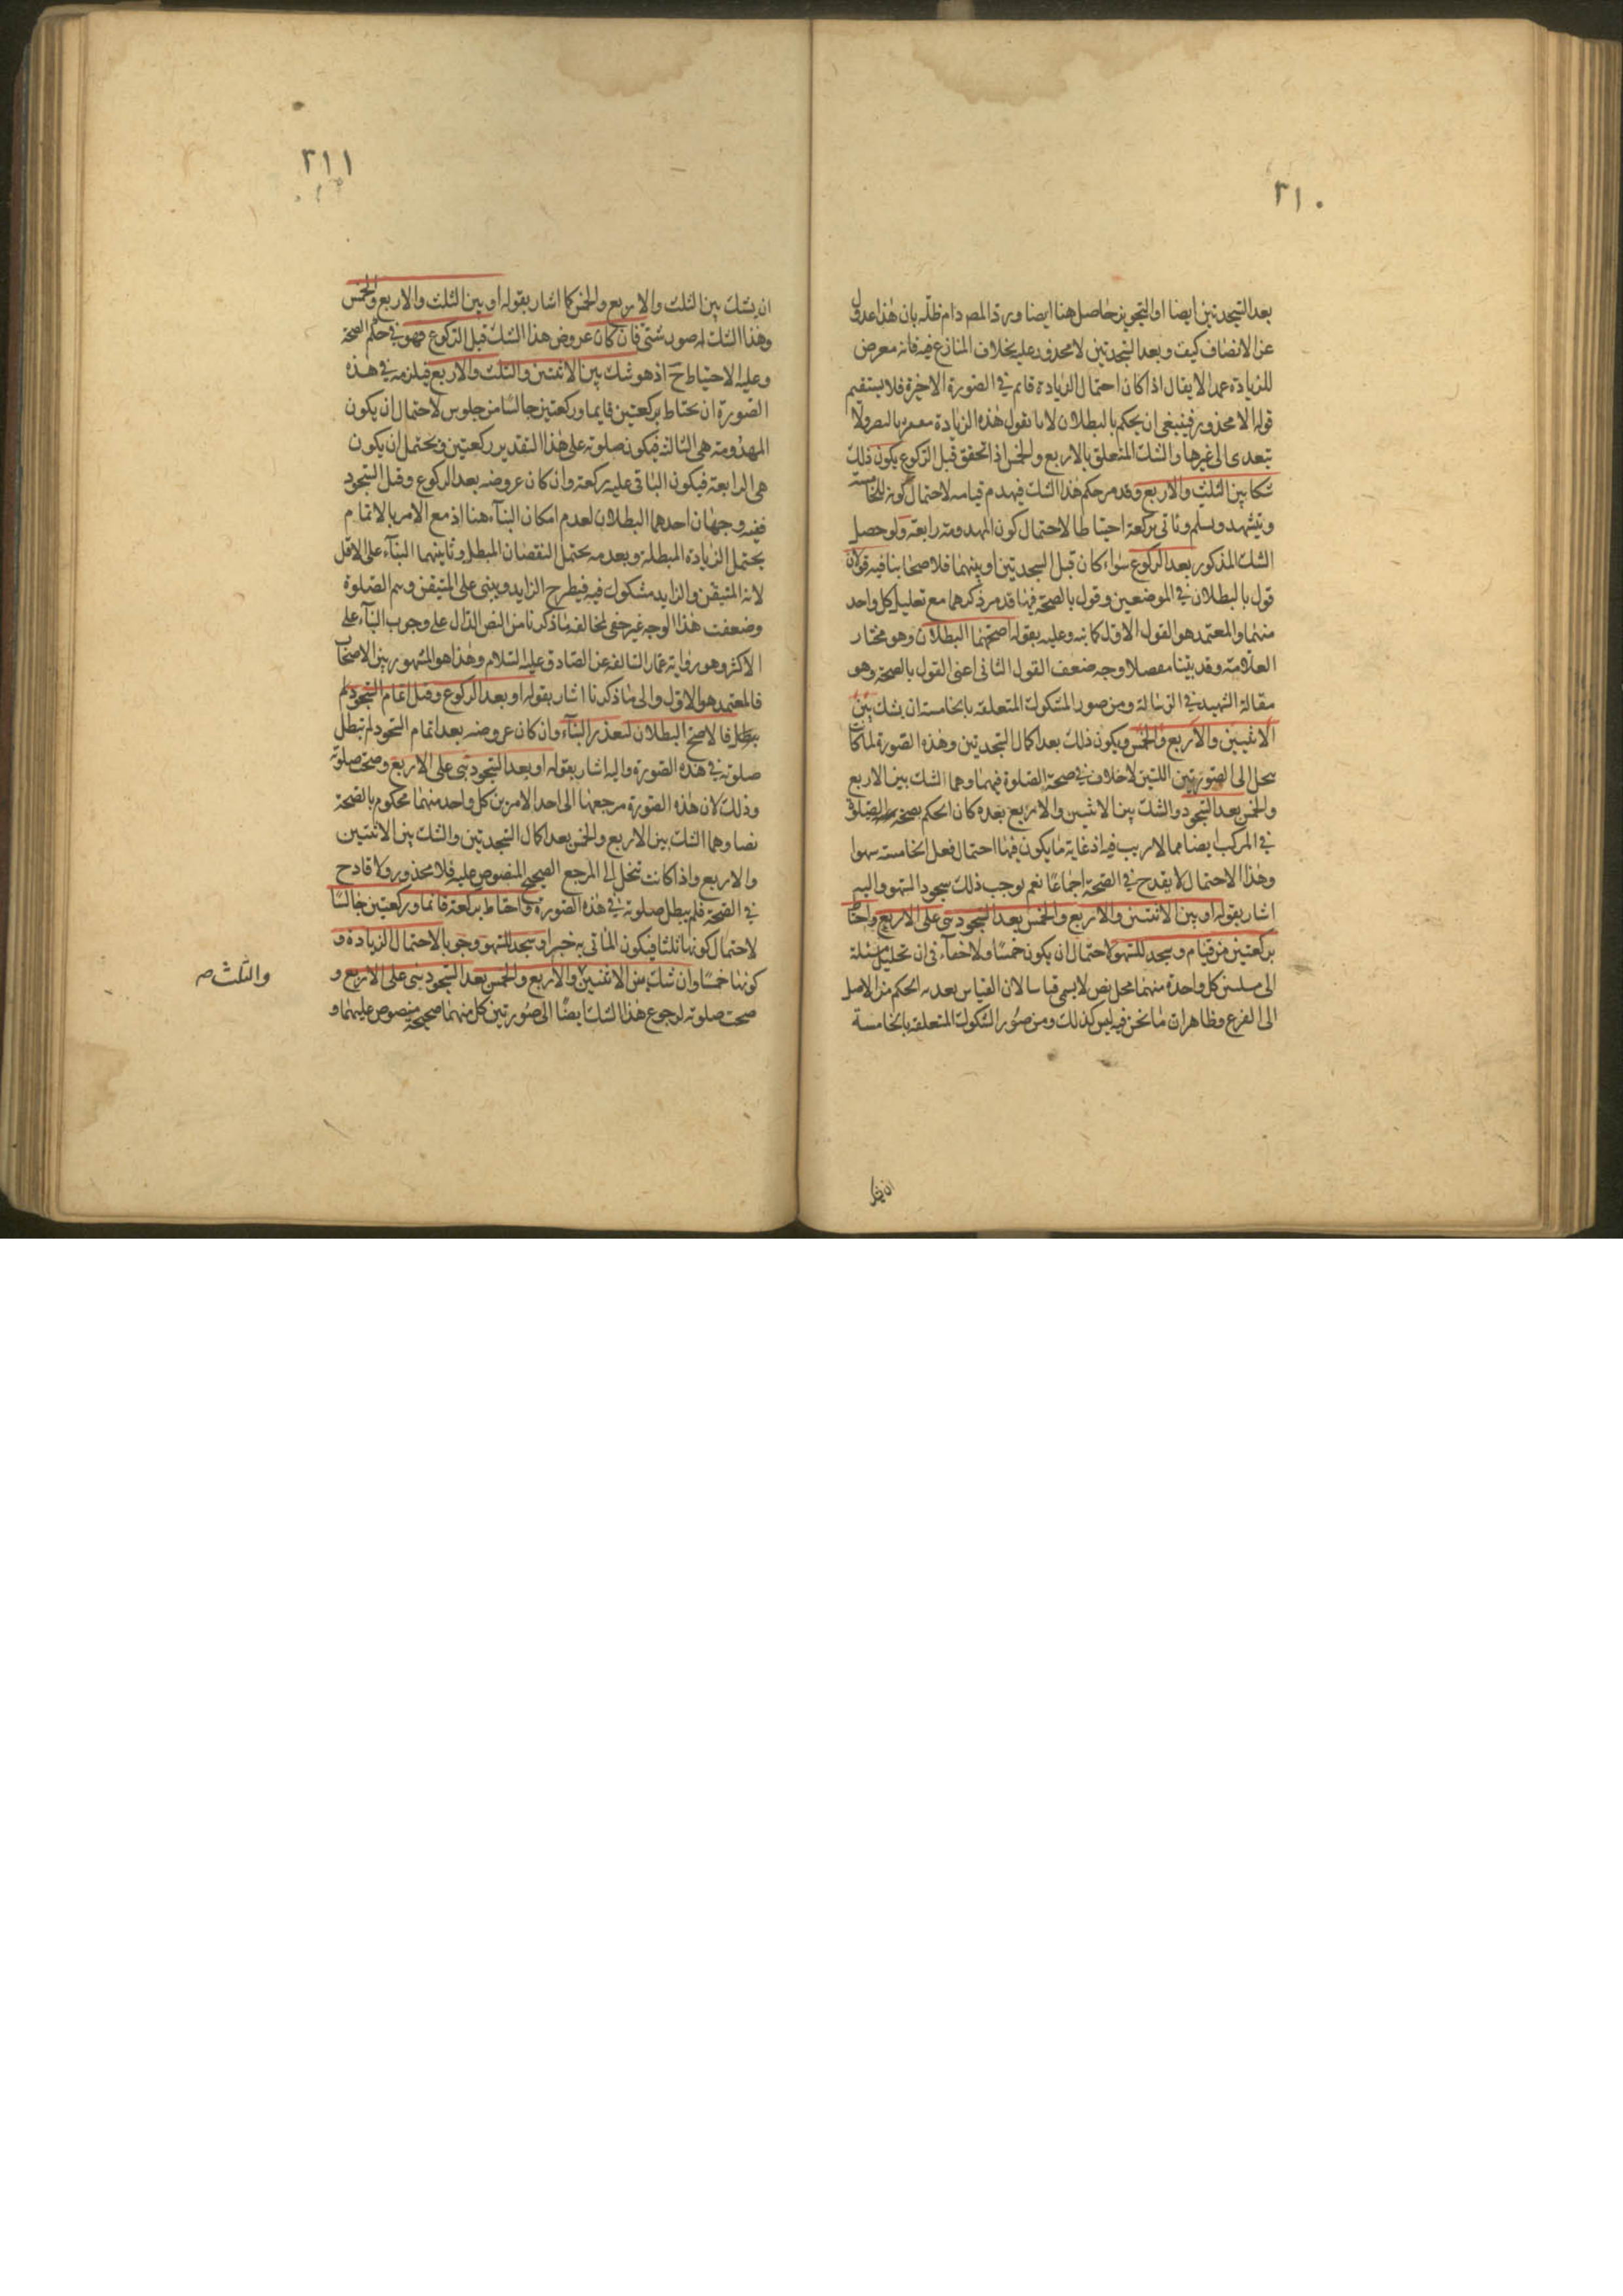 ٢١٠
بعد السجدتين ايضا او التجويز حاصل هنا ايضا ورد المص دام ظله بان هذا عدول
عن الانصاف كيف وبعد السجدتين لا محذور عليه بخلاف المنازع فيه فانه معرض
للزيادة عمدا لا يقال اذا كان احتمال الزيادة قائم في الصورة الاخيرة فلا يستقيم
قوله لا محذور فينبغي ان يحكم بالبطلان لانا نقول هذه الزيادة بالنص ولا
تتعدى الى غيرها والشك المتعلق بالاربع والخمس اذا تحقق قبل الركوع يكون ذلك
شكا بين الثلث والاربع وقد مر حكم هذا الشك فيهدم قيامه لاحتمال كونه للخامسة
ويتشهد ويسلم وياتي بركعة احتياطا لاحتمال كون المهدومة رابعة ولو حصل
الشك المذكور بعد الركوع سواء كان قبل السجدتين او بينهما فلاصحابنا فيه قولان
قول بالبطلان في الموضعين وقول بالصحة فيها قد مر ذكرهما مع تعليل كل واحد
منهما والمعتمد هو القول الاول كما نبه وعليه بقوله اصحهما البطلان وهو مختار
العلامة وقد بينا مفصلا وجه ضعف القول الثاني اعني القول بالصحة وهو
مقالة الشهيد في الرسالة ومن صور الشكوك المتعلقة بالخامسة ان يشك بين
الاثنين والاربع والخمس ويكون ذلك بعد اكمال السجدتين وهذه الصورة لما كانت
تنحل الى الصورتين اللتين لا خلاف في صحة الصلوة فيهما وهما الشك بين الاربع
والخمس بعد السجود والشك بين الاثنين والاربع بعده كان الحكم بصحة الصلوة
في المركب ايضا مما لا ريب فيه اذ غاية ما يكون فيها احتمال فعل الخامسة سهوا
وهذا الاحتمال لا يقدح في الصحة اجماعا نعم يوجب ذلك سجود السهو واليه
اشار بقوله او بين الاثنتين والاربع والخمس بعد السجود بنى على الاربع واحتاط
بركعتين من قيام وسجد للسهو لاحتمال ان يكون خمسا ولا خفاء في ان تحليل مسئلة
الى مسئلتين كل واحدة منهما محل نص لا يسمى قياسا لان القياس تعدية الحكم من الاصل
الى الفرع وظاهر ان ما نحن فيه ليس كذلك ومن صور الشكوك المتعلقة بالخامسة
ان يشك
٢١١
ان يشك بين الثلث والاربع والخمس كما اشار بقوله او بين الثلث والاربع والخمس
وهذا الشك له صور شتى فان كان عروض هذا الشك قبل الركوع فهو في حكم الصحة
وعليه الاحتياط ح اذ هو شك بين الاثنتين والثلث والاربع فيلزمه في هذه
الصورة ان يحتاط بركعتين قايما وركعتين جالسا من جلوس لاحتمال ان يكون
المهدومة هي الثالثة فيكون صلوته على هذا التقدير ركعتين ويحتمل ان يكون
هي الرابعة فيكون الباقي عليه ركعة وان كان عروضه بعد الركوع وقبل السجود
ففيه وجهان احدهما البطلان لعدم امكان البناء هنا اذ مع الامر بالاتمام
يحتمل الزيادة المبطلة وبعدمه يحتمل النقصان المبطل وثانيهما البناء على الاقل
لانه المتيقن والزايد مشكوك فيه فيطرح الزايد ويبنى على المتيقن ويتم الصلوة
وضعف هذا الوجه غير خفي لمخالفة ما ذكرنا من النص الدال على وجوب البناء على
الاكثر وهو رواية عمار السالفة عن الصادق عليه السلام وهذا هو المشهور بين الاصحاب
فالمعتمد هو الاول والى ما ذكرنا اشار بقوله او بعد الركوع وقبل اتمام السجود لم
فالاصح البطلان لتعذر البناء وان كان عروضه بعد اتمام السجود لم تبطل
صلوته في هذه الصورة واليه اشار بقوله او بعد السجود بنى على الاربع وصحت صلوته
وذلك لان هذه الصورة مرجعها الى احد الامرين كل واحد منهما محكوم بالصحة
نصا وهما الشك بين الاربع والخمس بعد اكمال السجدتين والشك بين الاثنتين
والاربع واذا كانت تنحل الى المرجع الصحيح المنصوص عليه فلا محذور ولا قادح
في الصحة فلم يبطل صلوته في هذه الصورة واحتاط بركعة قائما وركعتين جالسا
لاحتمال كونها ثلثا فيكون الماتي به خبرا وسجد للسهو وجوبا لاحتمال الزيادة و
كونها خمسا وان شك بين الاثنتين والاربع والخمس بعد السجود بنى على الاربع و
صحت صلوته لرجوع هذا الشك ايضا الى صورتين كل منهما صحيحة منصوص عليهما و
والثلث صه